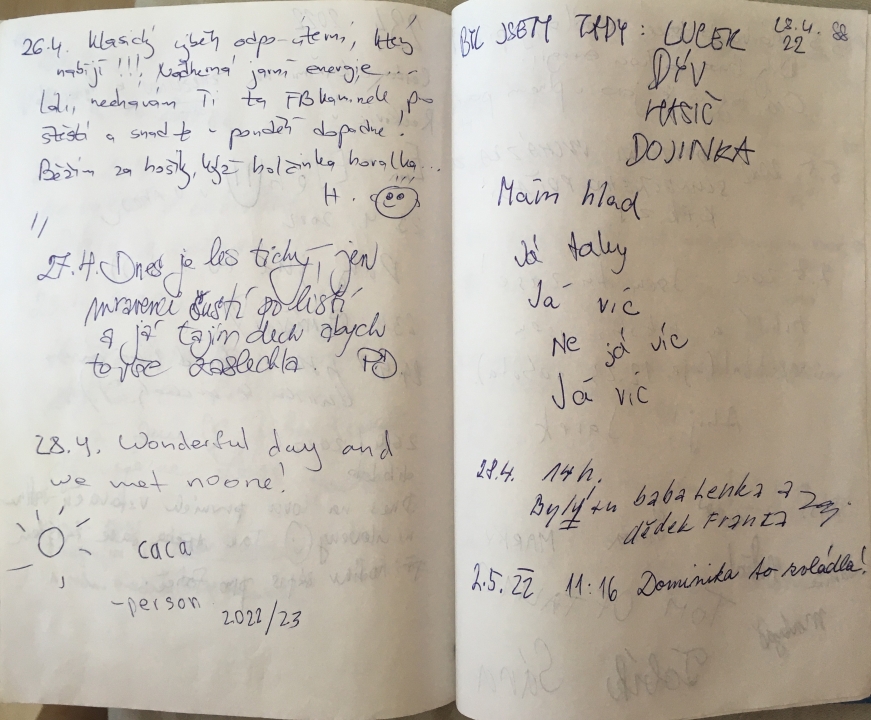 26.4. Klasický výběh odpo-úterní, který
nabíjí !!! Nádherná jarní energie...
nechávám Ti tu FB kamínek pro
štěstí a snad to v pondělí dopadne!
Běžím za hošíky, když holčinka horalka...
H.
27.4. Dnes je les tichý, jen
mravenci šustí po listí
a já tajím dech abych
to vše zaslechla.
28.4. Wonderful day and
we met noone!
caca
-person
2022/23
BYL JSEM TADY: LUCEK 28.4. 88
22
DÝV
HASIČ
DOJINKA
Mám hlad
Já taky
Já víc
Ne já víc
Já víc
28.4. 14h.
Byly tu baba Lenka a
dědek Franta
2.5.22 11:16 Dominika to zvládla!